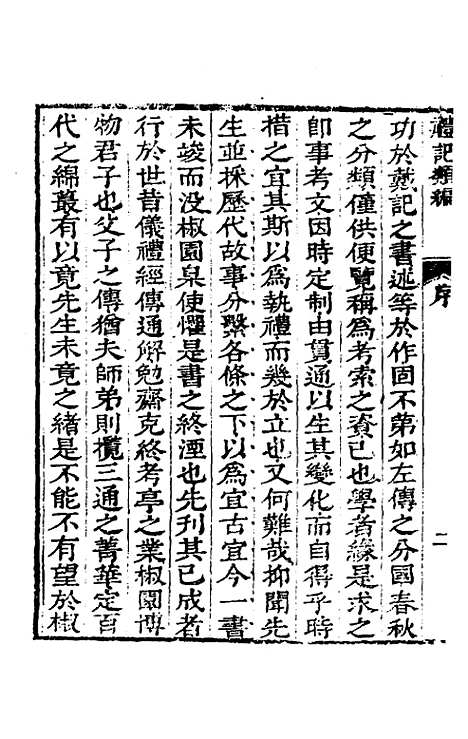 禮記類編
序
二
功於戴記之書述等於作固不苐如左傳之分國春秋
之分類僅供便覽稱為考索之資已也學者緣是求之
即事考文因時定制由貫通以生其變化而自得乎時
措之宜其斯以為執禮而幾於立也又何難哉抑聞先
生並採歷代故事分繫各條之下以為宜古宜今一書
未竣而没椒園臬使懼是書之終湮也先刊其已成者
行於世昔儀禮經傳通解勉齋克終考亭之業椒園博
物君子也父子之傳猶夫師弟則欖三通之菁華定百
代之綿蕞有以竟先生未竟之緒是不能不有望於椒